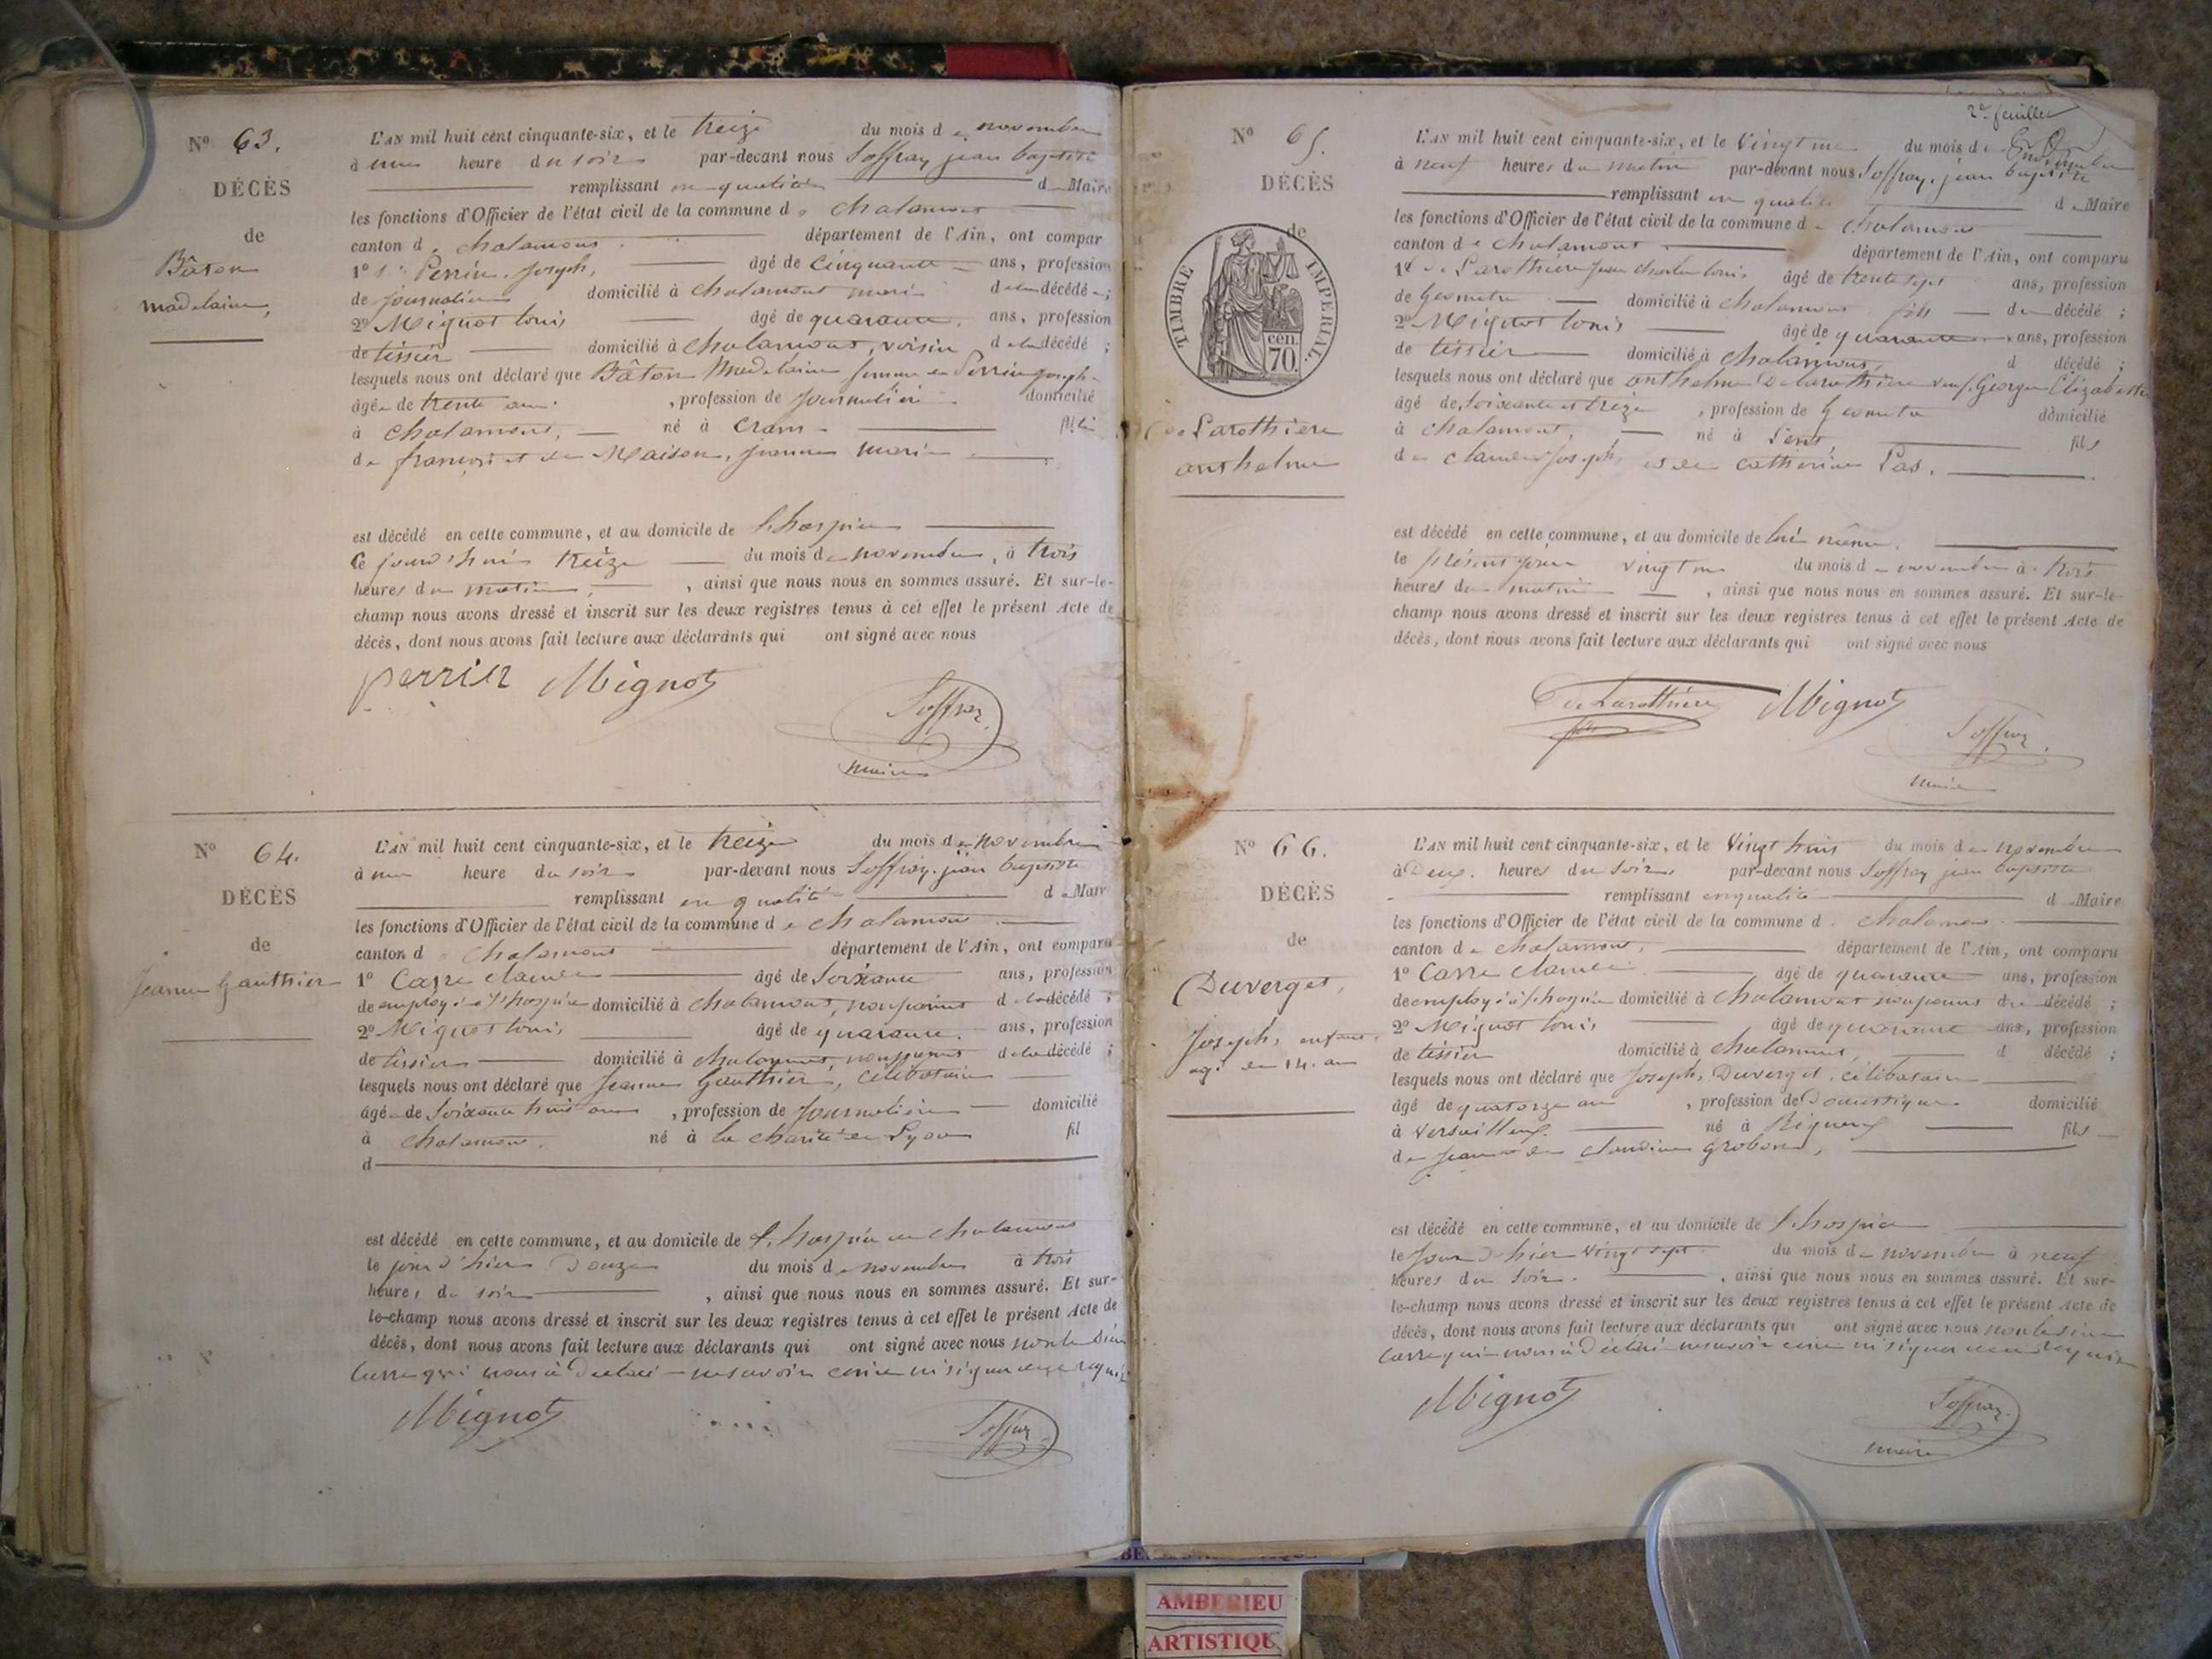 Nº 63.
DÉCÈS
de
Bâton
madelaine,
L'AN mil huit cent cinquante-six, et le treize du mois de novembre
à une heure du soir par-devant nous Soffray jean baptiste
remplissant en qualité de Maire
les fonctions d'Officier de l'état civil de la commune de chalamont
canton de chalamont département de l'Ain, ont compar
1º Perrin, joseph, âgé de Cinquante ans, profession
de journalier domicilié à chalamont mari de la décédée;
2º Mignot louis âgé de quarante ans, profession
de tissier domicilié à chalamont, voisin de la décédé;
lesquels nous ont déclaré que Bâton Madelaine femme de Perrin joseph
âgée de trente ans, profession de journalière domicilié
à chalamont, né à Crans fille
de françois et de Maison, jeanne marie
est décédé en cette commune, et au domicile de l'hospice
Ce jourd'hui treize du mois de novembre, à trois
heures du matin, ainsi que nous nous en sommes assuré. Et sur-le-
champ nous avons dressé et inscrit sur les deux registres tenus à cet effet le présent Acte de
décès, dont nous avons fait lecture aux déclarants qui ont signé avec nous
perrin Mignot
Soffray
maire
Nº 64.
DÉCÈS
de
Jeanne Gauthier
L'AN mil huit cent cinquante-six, et le treize du mois de novembre
à une heure du soir par-devant nous Soffray jean baptiste
remplissant en qualité de Mair
les fonctions d'Officier de l'état civil de la commune de chalamont
canton de chalamont département de l'Ain, ont comparu
1º Carre claude âgé de Soixante ans, profession
de employé à l'hospice domicilié à chalamont, non parent de la décédé;
2º Mignot louis âgé de quarante ans, profession
de tissier domicilié à chalamont, non parent de la décédé;
lesquels nous ont déclaré que Jeanne Gauthier, célibataire
âgée de Soixante huit ans, profession de journalière domicilié
à chalamont. né à la charité de Lyon fil
d
est décédé en cette commune, et au domicile de l'hospice de chalamont
le jour d'hier Douze du mois de novembre à trois
heures du soir, ainsi que nous nous en sommes assuré. Et sur-
le-champ nous avons dressé et inscrit sur les deux registres tenus à cet effet le présent Acte de
décès, dont nous avons fait lecture aux déclarants qui ont signé avec nous
Carre qui nous a Déclaré ne savoir écrire ni signer de ce requis
Mignot
Soffray
2e feuillet
Nº 65.
DÉCÈS
de
TIMBRE IMPÉRIAL.
cen.
70.
De Larothière
anthelme
L'AN mil huit cent cinquante-six, et le Vingt un du mois de novembre
à neuf heures du matin par-devant nous Soffray, jean baptiste
remplissant en qualité de Maire
les fonctions d'Officier de l'état civil de la commune de chalamont
canton de chalamont département de l'Ain, ont comparu
1º De Larothière jean charles louis âgé de trente sept ans, profession
de Géometre domicilié à chalamont fils du décédé;
2º Mignot louis âgé de quarante ans, profession
de tissier domicilié à chalamont, d décédé;
lesquels nous ont déclaré que anthelme De Larothière veuf Georges Elizabeth
âgé de Soixante et treize, profession de Géometre domicilié
à chalamont, né à fils
de claude Joseph et de catherine Pas.
est décédé en cette commune, et au domicile de lui même.
le présent jour vingt un du mois de novembre à trois
heures du matin, ainsi que nous nous en sommes assuré. Et sur-le-
champ nous avons dressé et inscrit sur les deux registres tenus à cet effet le présent Acte de
décès, dont nous avons fait lecture aux déclarants qui ont signé avec nous
De Larothière Mignot
Soffray
maire
Nº 66.
DÉCÈS
de
Duverget,
Joseph, enfant,
agé de 14. ans
L'AN mil huit cent cinquante-six, et le Vingt huit du mois de novembre
à Deux heures du Soir par-devant nous Soffray jean baptiste
remplissant en qualité de Maire
les fonctions d'Officier de l'état civil de la commune d. chalamont
canton de chalamont, département de l'Ain, ont comparu
1º Carre claude âgé de quarante ans, profession
de employé à l'hospice domicilié à chalamont non parent du décédé;
2º Mignot louis âgé de quarante ans, profession
de tissier domicilié à chalamont, d décédé;
lesquels nous ont déclaré que Joseph, Duverget, célibataire
âgé de quatorze ans, profession de Domestique domicilié
à Versailleux. né à Rigneux fils
de jean et de claudine grobond,
est décédé en cette commune, et au domicile de l'hospice
le Jour d'hier Vingt sept du mois de novembre à neuf
heures du Soir., ainsi que nous nous en sommes assuré. Et sur-
le-champ nous avons dressé et inscrit sur les deux registres tenus à cet effet le présent Acte de
décès, dont nous avons fait lecture aux déclarants qui ont signé avec nous
Carre qui nous a Déclaré ne savoir écrire ni signer de ce requis
Mignot
Soffray
maire
AMBERIEU
ARTISTIQU